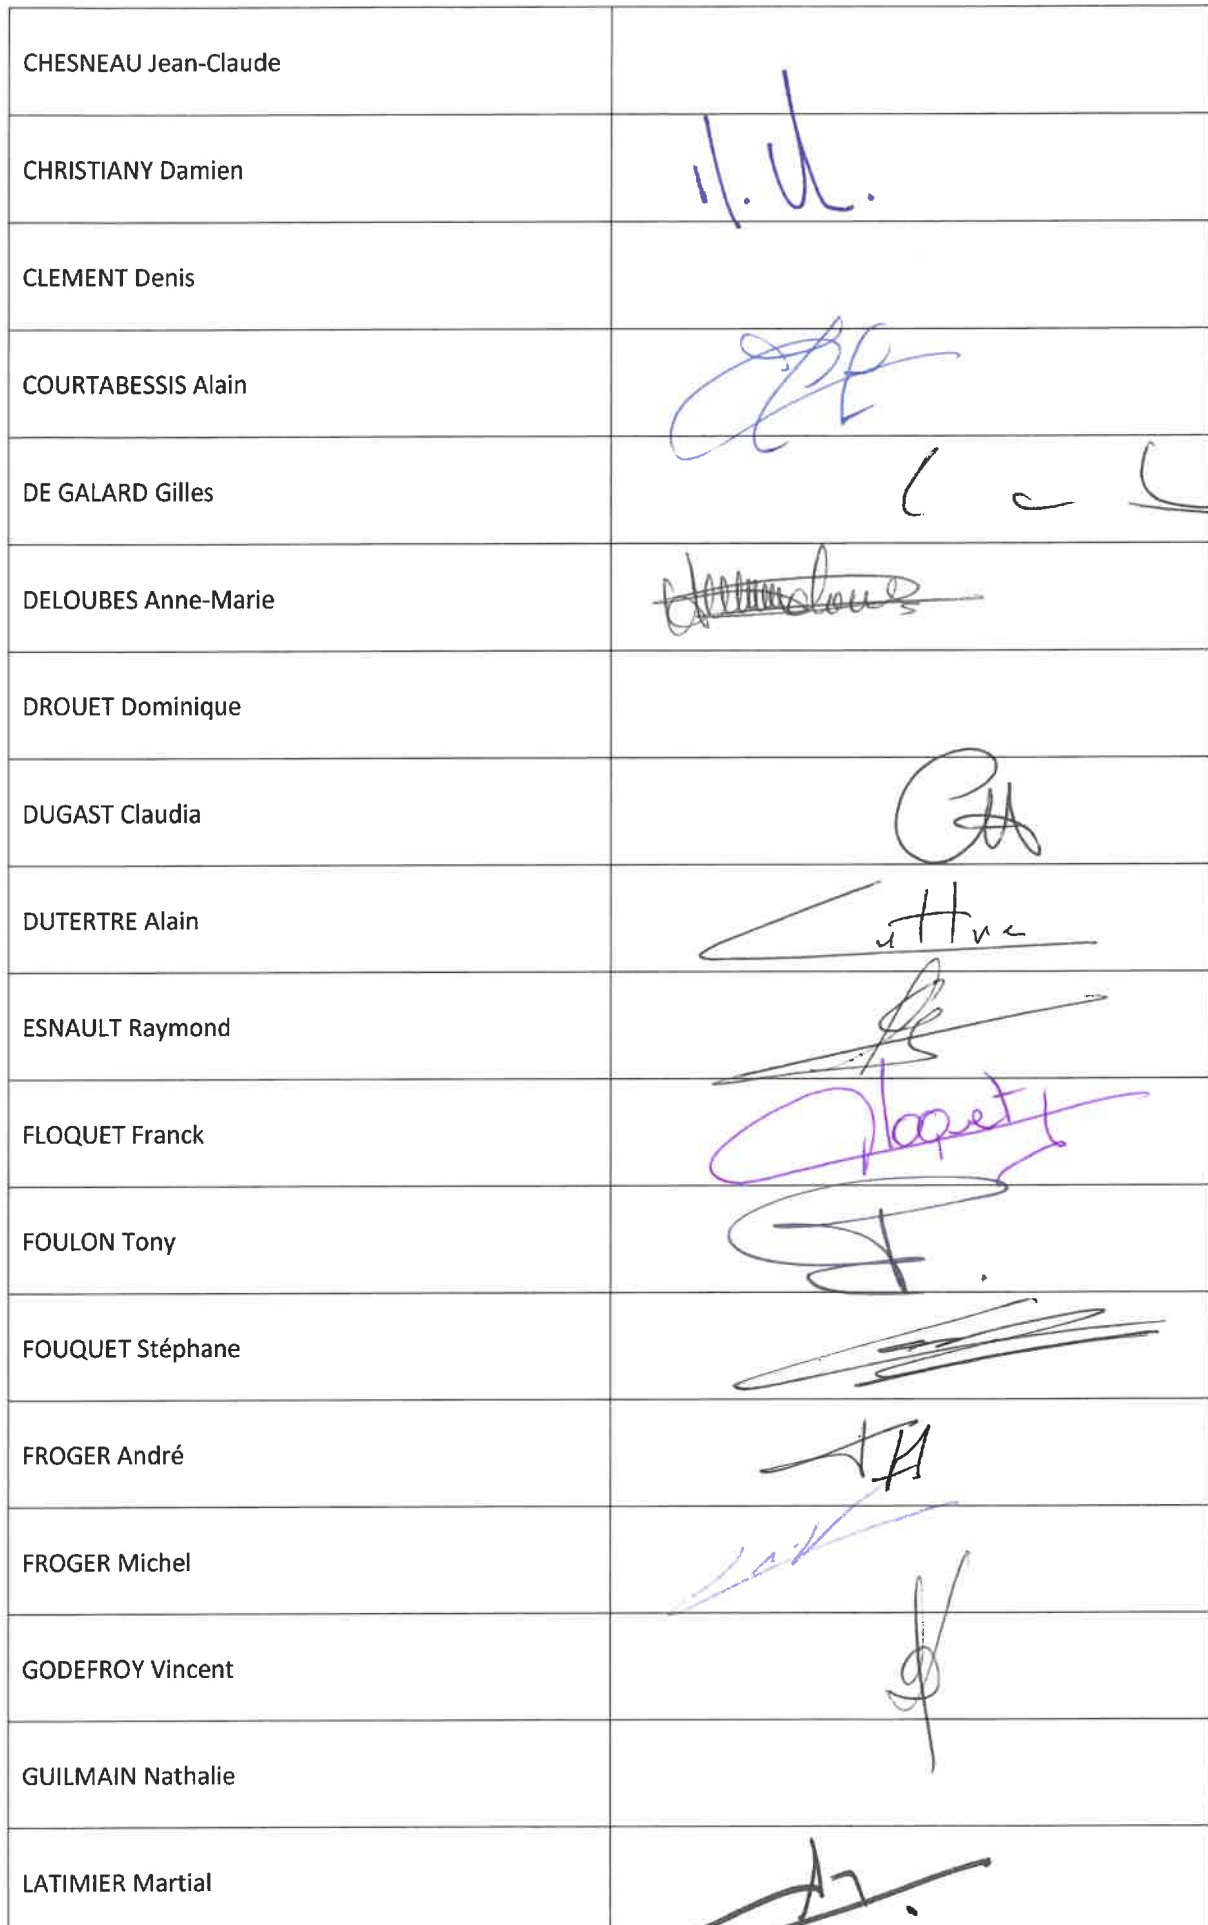 CHESNEAU Jean-Claude
CHRISTIANY Damien
CLEMENT Denis
COURTABESSIS Alain
DE GALARD Gilles
DELOUBES Anne-Marie
DROUET Dominique
DUGAST Claudia
DUTERTRE Alain
ESNAULT Raymond
FLOQUET Franck
Floquet
FOULON Tony
FOUQUET Stéphane
FROGER André
FROGER Michel
GODEFROY Vincent
GUILMAIN Nathalie
LATIMIER Martial